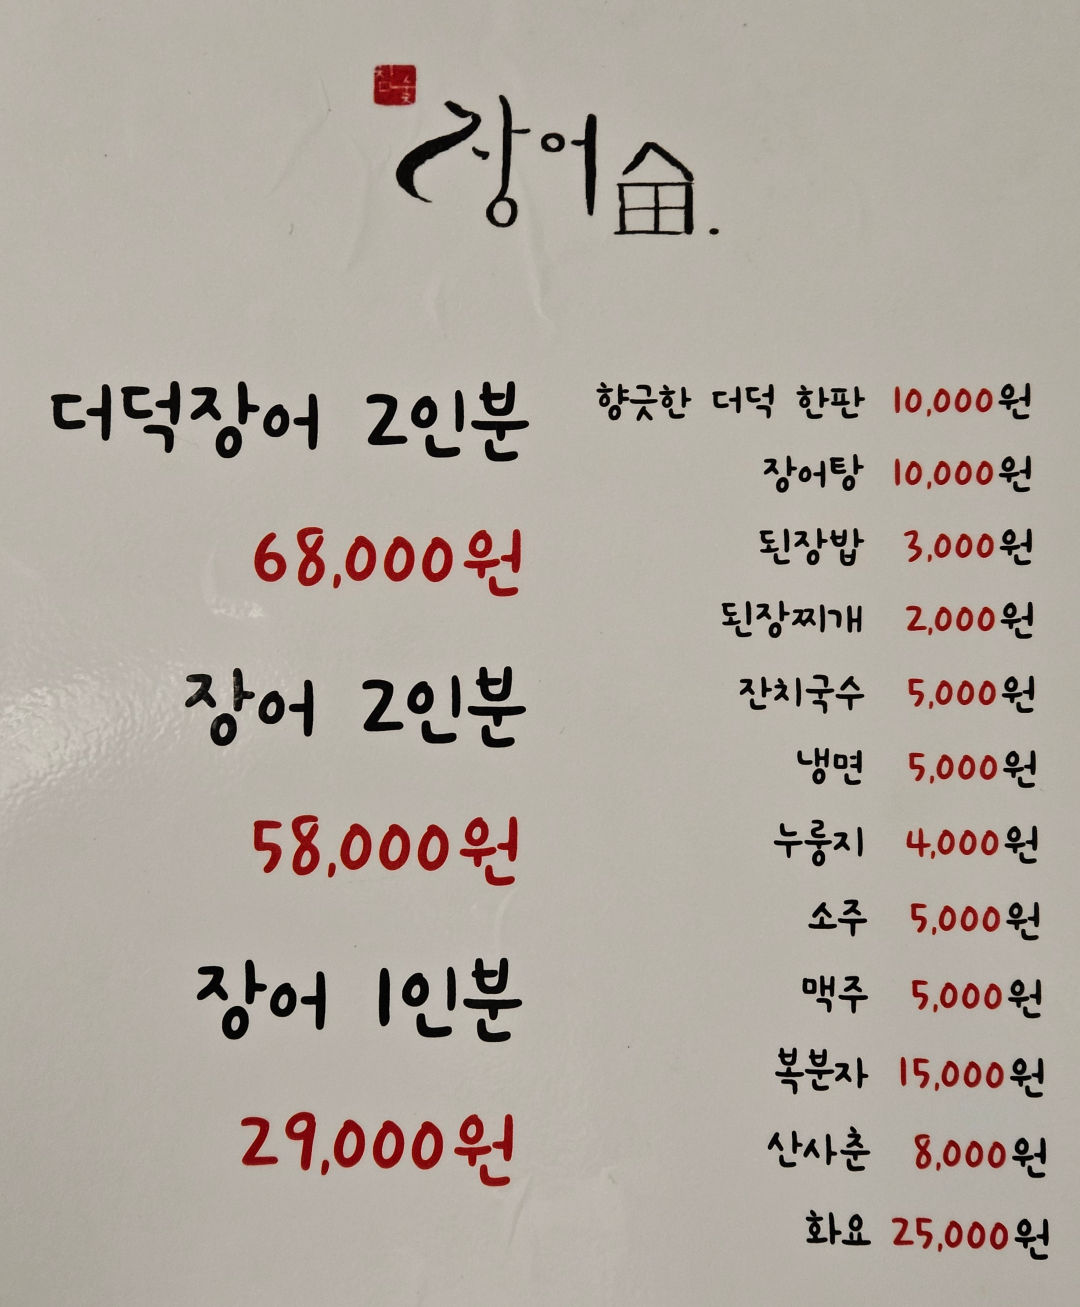 장어
더덕장어 2인분
68,000원
장어 2인분
58,000원
장어 1인분
29,000원
향긋한 더덕 한판 10,000원
장어탕 10,000원
된장밥 3,000원
된장찌개 2,000원
잔치국수 5,000원
냉면 5,000원
누룽지 4,000원
소주 5,000원
맥주 5,000원
복분자 15,000원
산사춘 8,000원
화요 25,000원